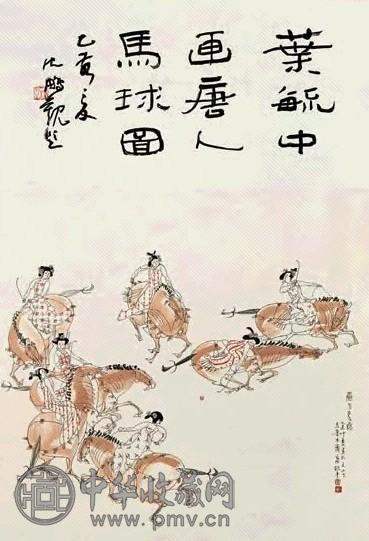 葉毓中
画唐人
馬球圖
乙亥夏
沈鵬观题
中华收藏网
www.pmv.cn